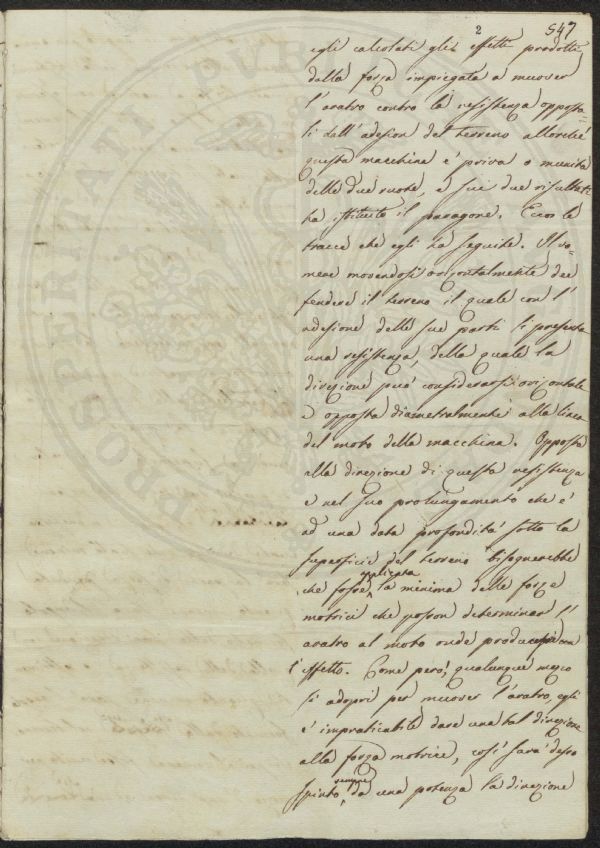 2
547
egli calcolati gli effetti prodotti
dalla forza impiegata a muover
l'aratro contro la resistenza oppostali
dall'adesion del terreno allorché
questa macchina è priva o munita
delle due ruote, e sui due risultati
ha istituito il paragone. Ecco le
tracce che egli ha seguite. Il vomere
movendosi orizontalmente dee
fendere il terreno il quale con l'
adesione delle sue parti li presenta
una resistenza, della quale la
direzione può considerarsi orizontale
e opposta diametralmente alla linea
del moto della macchina. Opposta
alla direzione di questa resistenza
e nel suo prolungamento che è
ad una data profondità sotto la
superficie del terreno bisognerebbe
che fosse applicata la minima delle forze
motrici che posson determinar l'
aratro al moto onde
l'effetto. Come però, qualunque mezo
si adopri per muover l'aratro, egli
è impraticabile dare una tal direzione
alla forza motrice, così sarà desso
spinto sempre da una potenza la direzione
PROSPERITATI PUBLICAE